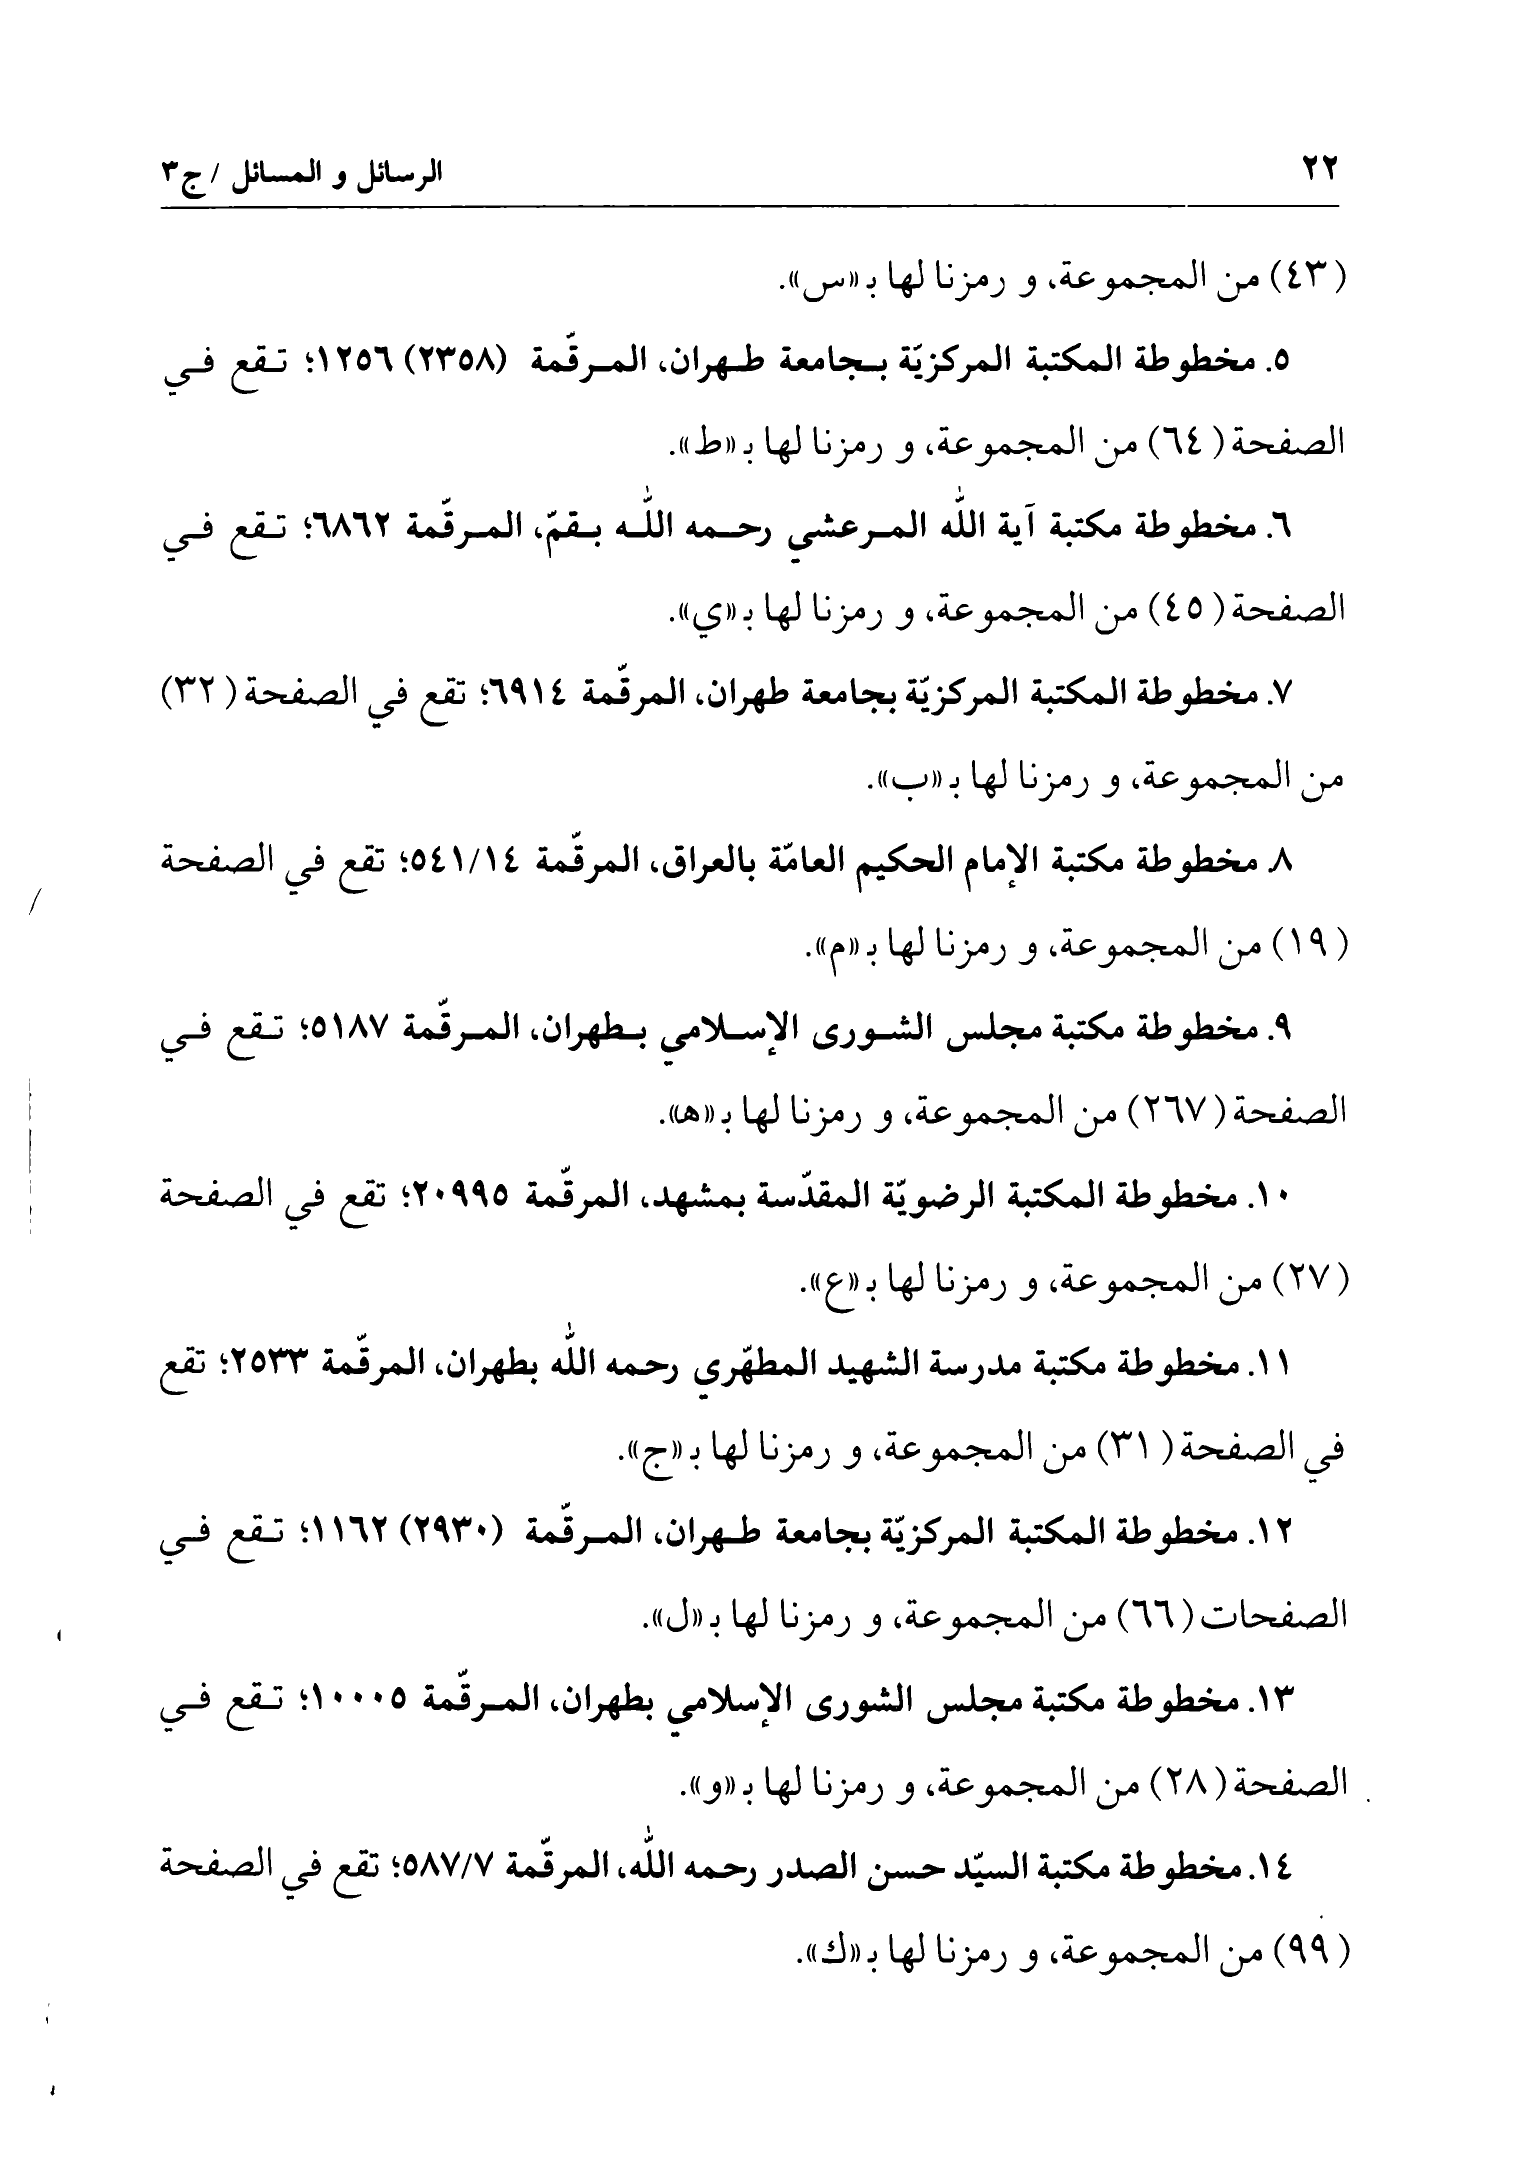 ٢٢ الرسائل و المسائل / ج٣
(٤٣) من المجموعة، و رمزنا لها بـ«س».
٥. مخطوطة المكتبة المركزيّة بجامعة طهران، المرقّمة (٢٣٥٨) ١٢٥٦؛ تقع في
الصفحة (٦٤) من المجموعة، و رمزنا لها بـ«ط».
٦. مخطوطة مكتبة آية اللّٰه المرعشي رحمه اللّٰه بقمّ، المرقّمة ٦٨٦٢؛ تقع في
الصفحة (٤٥) من المجموعة، و رمزنا لها بـ«ي».
٧. مخطوطة المكتبة المركزيّة بجامعة طهران، المرقّمة ٦٩١٤؛ تقع في الصفحة (٣٢)
من المجموعة، و رمزنا لها بـ«ب».
٨. مخطوطة مكتبة الإمام الحكيم العامّة بالعراق، المرقّمة ٥٤١/١٤؛ تقع في الصفحة
(١٩) من المجموعة، و رمزنا لها بـ«م».
٩. مخطوطة مكتبة مجلس الشورى الإسلامي بطهران، المرقّمة ٥١٨٧؛ تقع في
الصفحة (٢٦٧) من المجموعة، و رمزنا لها بـ«هـ».
١٠. مخطوطة المكتبة الرضويّة المقدّسة بمشهد، المرقّمة ٢٠٩٩٥؛ تقع في الصفحة
(٢٧) من المجموعة، و رمزنا لها بـ«ع».
١١. مخطوطة مكتبة مدرسة الشهيد المطهّري رحمه اللّٰه بطهران، المرقّمة ٢٥٣٣؛ تقع
في الصفحة (٣١) من المجموعة، و رمزنا لها بـ«ج».
١٢. مخطوطة المكتبة المركزيّة بجامعة طهران، المرقّمة (٢٩٣٠) ١١٦٢؛ تقع في
الصفحات (٦٦) من المجموعة، و رمزنا لها بـ«ل».
١٣. مخطوطة مكتبة مجلس الشورى الإسلامي بطهران، المرقّمة ١٠٠٠٥؛ تقع في
الصفحة (٢٨) من المجموعة، و رمزنا لها بـ«و».
١٤. مخطوطة مكتبة السيّد حسن الصدر رحمه اللّٰه، المرقّمة ٥٨٧/٧؛ تقع في الصفحة
(٩٩) من المجموعة، و رمزنا لها بـ«ك».